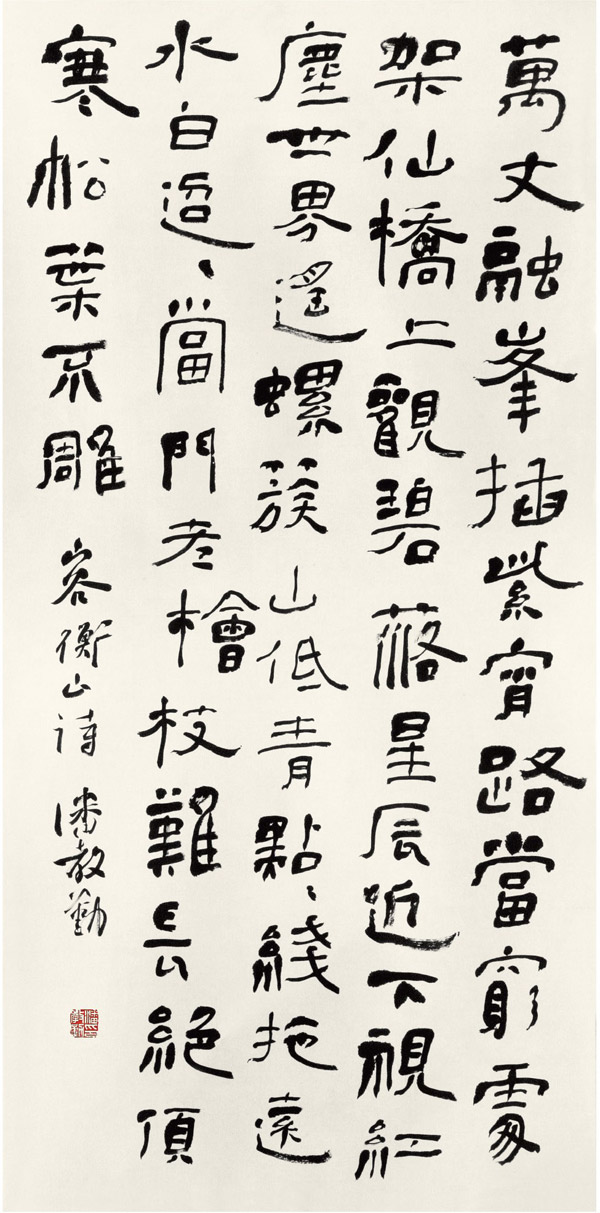 萬丈融峯插紫霄路當窮處
架仙橋上觀碧落星辰近下視紅
塵世界遙螺簇山低青點〻綫拖遠
水白迢〻當門老檜枝難長絕頂
寒松葉不雕
衡山诗 潘教勤